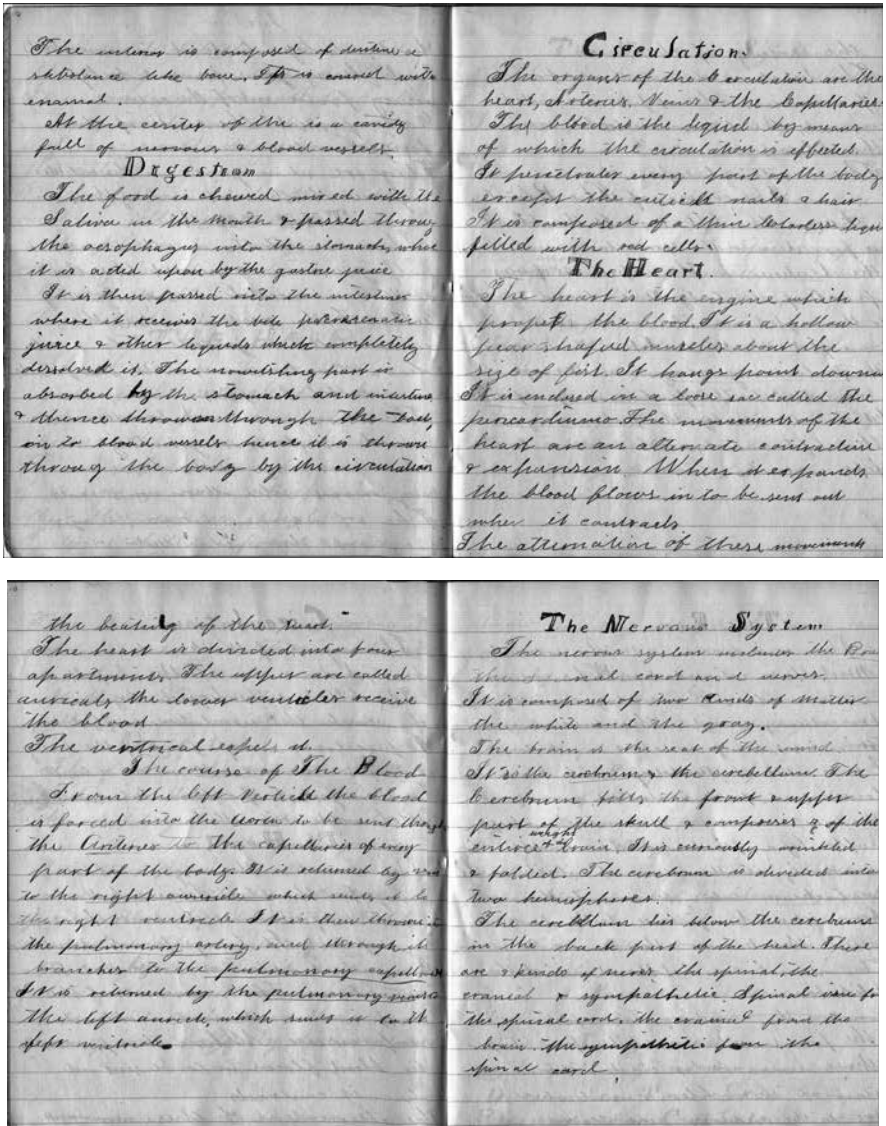 The interior is composed of dentine a
substance like bone. It is covered with
enamal.
At the center of the is a cavity
full of nervous & blood vessels.
Digestion
The food is chewed mixed with the
Saliva in the mouth & passed throug
the oesophagus into the stomach, where
it is acted upon by the gastric juice
It is then passed into the intestines
where it receives the bile
juice & other liquids which completely
dissolved it. The nourishing part is
absorbed by the stomach and intestine
& thence thrown through the
on to blood vessels hence it is thrown
throug the body by the circulation
Circulation.
The organs of the Circulation are the
heart, Arteries, Veins & the Capillaries
The blood is the liquid by means
of which the circulation is effected.
It penetrates every part of the body
except the nails & hair
It is composed of a thin liquid
filled with red cells.
The Heart.
The heart is the engine which
propels the blood. It is a hollow
pear shaped muscles about the
size of fist. It hangs point downw
It is inclosed in a loose sac called the
The movements of the
heart are an alternate contraction
& expansion When it expands
the blood flows in to be sent out
when it contracts.
The alternation of these movements
the beating of the heart.
The heart is divided into four
apartments. The upper are called
auricals the lower receive
the blood
The ventrical expels it.
The course of The Blood
From the left the blood
is forced into the to be sent through
the Arteries to the capillaries of every
part of the body. It is returned by
to the right auricle which sends it to
the right ventricle It is then thrown
the pulmonary artery, and through it
branches to the pulmonary
It is returned by the pulmonary veins
the left auricle, which sends it to th
left ventricle.
The Nervous System
The nervous system includes the
the cord and nerves.
It is composed of two kinds of matter
the white and the gray.
The brain is the seat of the mind
It is the cerebrum & the cerebellum. The
Cerebrum fills the front & upper
part of the skull & of the
weight
brain. It is curiously wrinkled
& folded. The cerebrum is divided into
two hemispheres.
The cerebellum lies below the cerebrum
in the back part of the head. There
are 3 kinds of nerves the spinal, the
cranial & sympathetic. Spinal
the spinal cord. the cranial from the
brain. the sympathetic from the
spinal cord